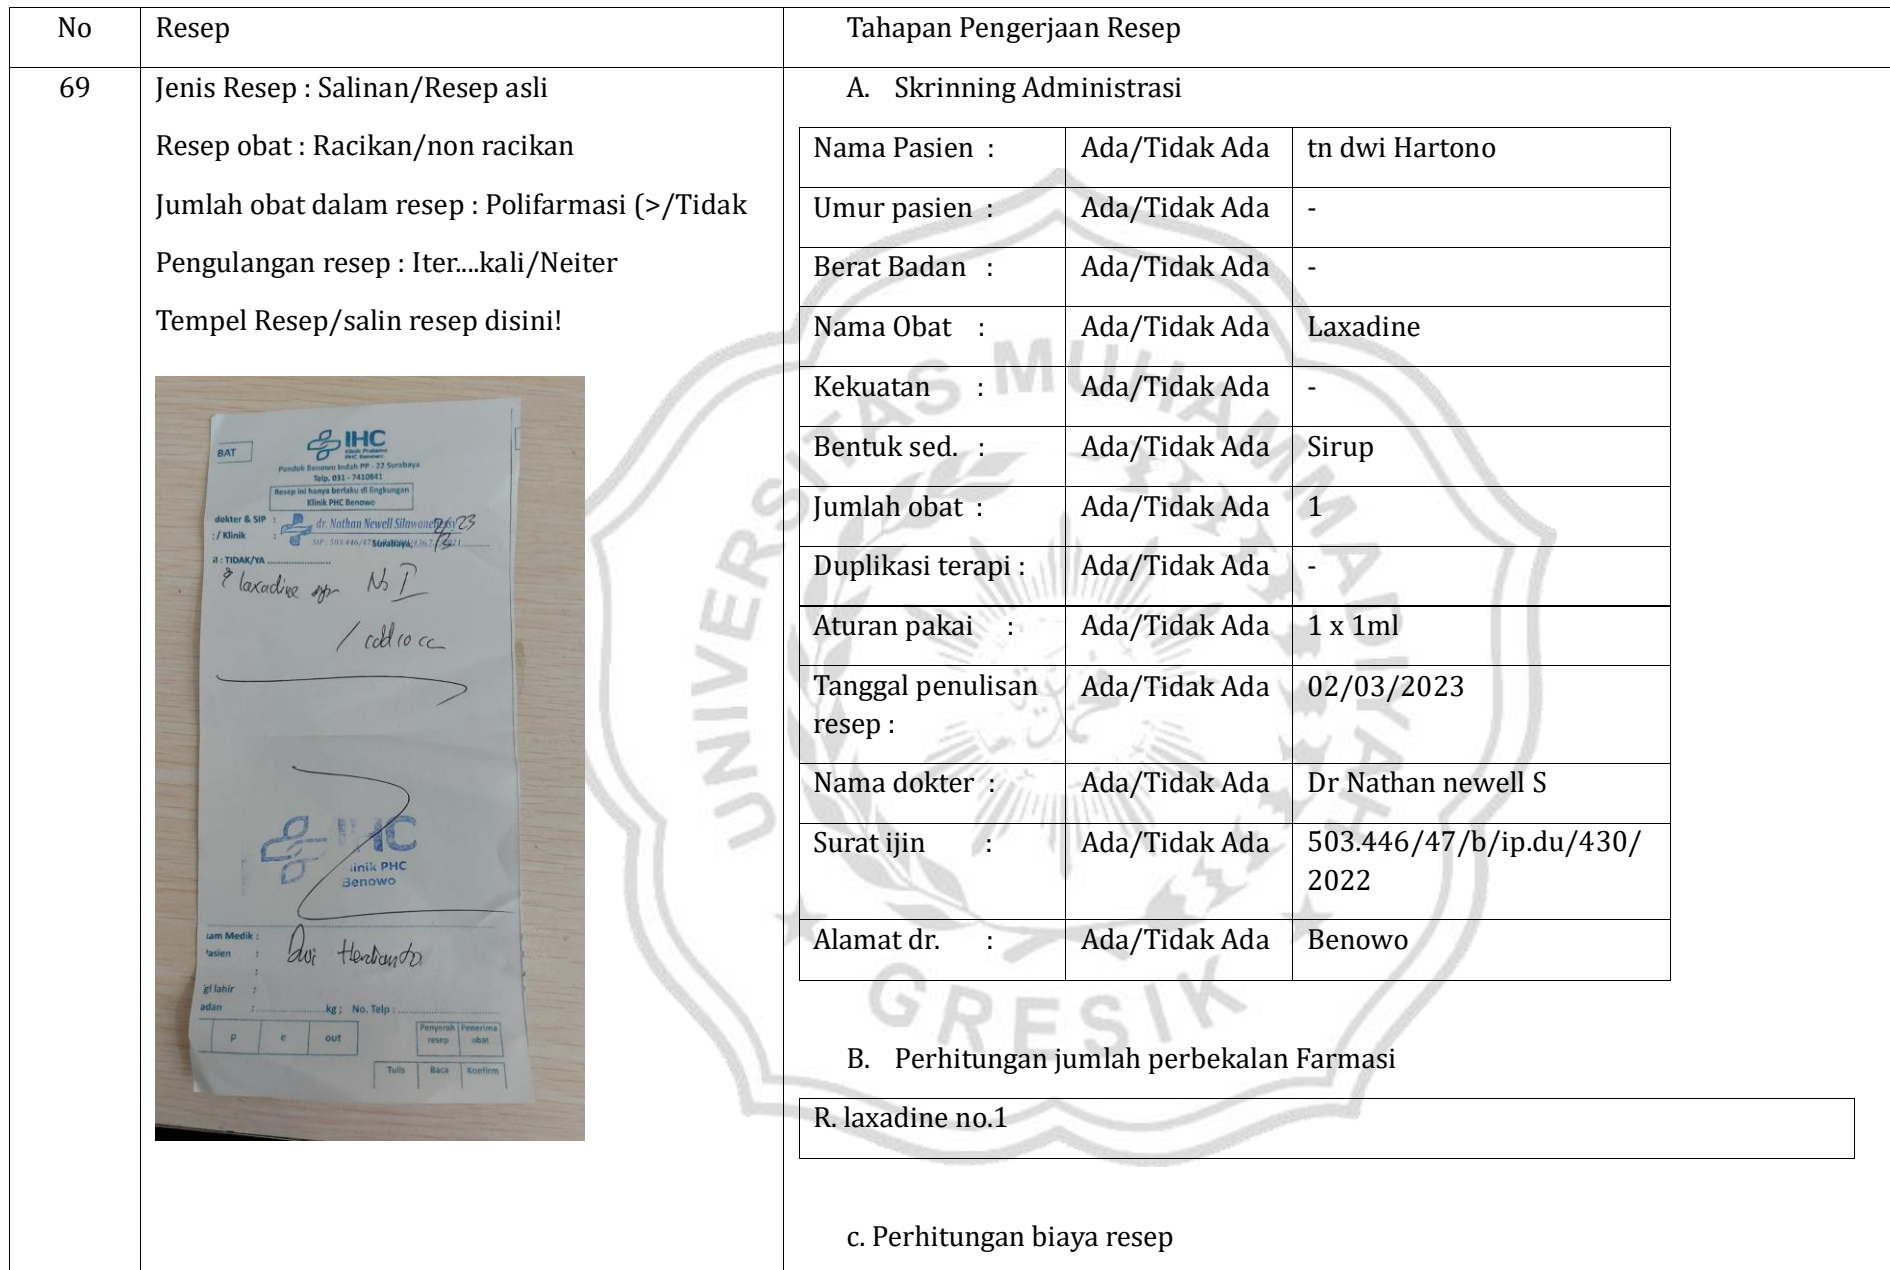 No
Resep
Tahapan Pengerjaan Resep
69
Jenis Resep : Salinan/Resep asli
Resep obat : Racikan/non racikan
Jumlah obat dalam resep : Polifarmasi (>/Tidak
Pengulangan resep : Iter....kali/Neiter
Tempel Resep/salin resep disini!
BAT
IHC
Klinik Pratama
PHC Benowo
Pondok Benowo Indah PP - 22 Surabaya
Telp. 031 - 7410841
Resep ini hanya berlaku di lingkungan
Klinik PHC Benowo
dokter & SIP :
dr. Nathan Newell
: / Klinik :
SIP : 503.446/47
Surabaya,
: TIDAK/YA
laxadine syr No I
/ cdd 10 cc
IHC
linik PHC
Benowo
am Medik :
Pasien :
Dwi
:
gl lahir :
adan : kg ; No. Telp :
p
e
out
Penyerah resep
Penerima obat
Tulis
Baca
Konfirm
A. Skrinning Administrasi
Nama Pasien : Ada/Tidak Ada tn dwi Hartono
Umur pasien : Ada/Tidak Ada -
Berat Badan : Ada/Tidak Ada -
Nama Obat : Ada/Tidak Ada Laxadine
Kekuatan : Ada/Tidak Ada -
Bentuk sed. : Ada/Tidak Ada Sirup
Jumlah obat : Ada/Tidak Ada 1
Duplikasi terapi : Ada/Tidak Ada -
Aturan pakai : Ada/Tidak Ada 1 x 1ml
Tanggal penulisan Ada/Tidak Ada 02/03/2023
resep :
Nama dokter : Ada/Tidak Ada Dr Nathan newell S
Surat ijin : Ada/Tidak Ada 503.446/47/b/ip.du/430/
2022
Alamat dr. : Ada/Tidak Ada Benowo
B. Perhitungan jumlah perbekalan Farmasi
R. laxadine no.1
c. Perhitungan biaya resep
UNIVERSITAS MUHAMMADIYAH
GRESIK